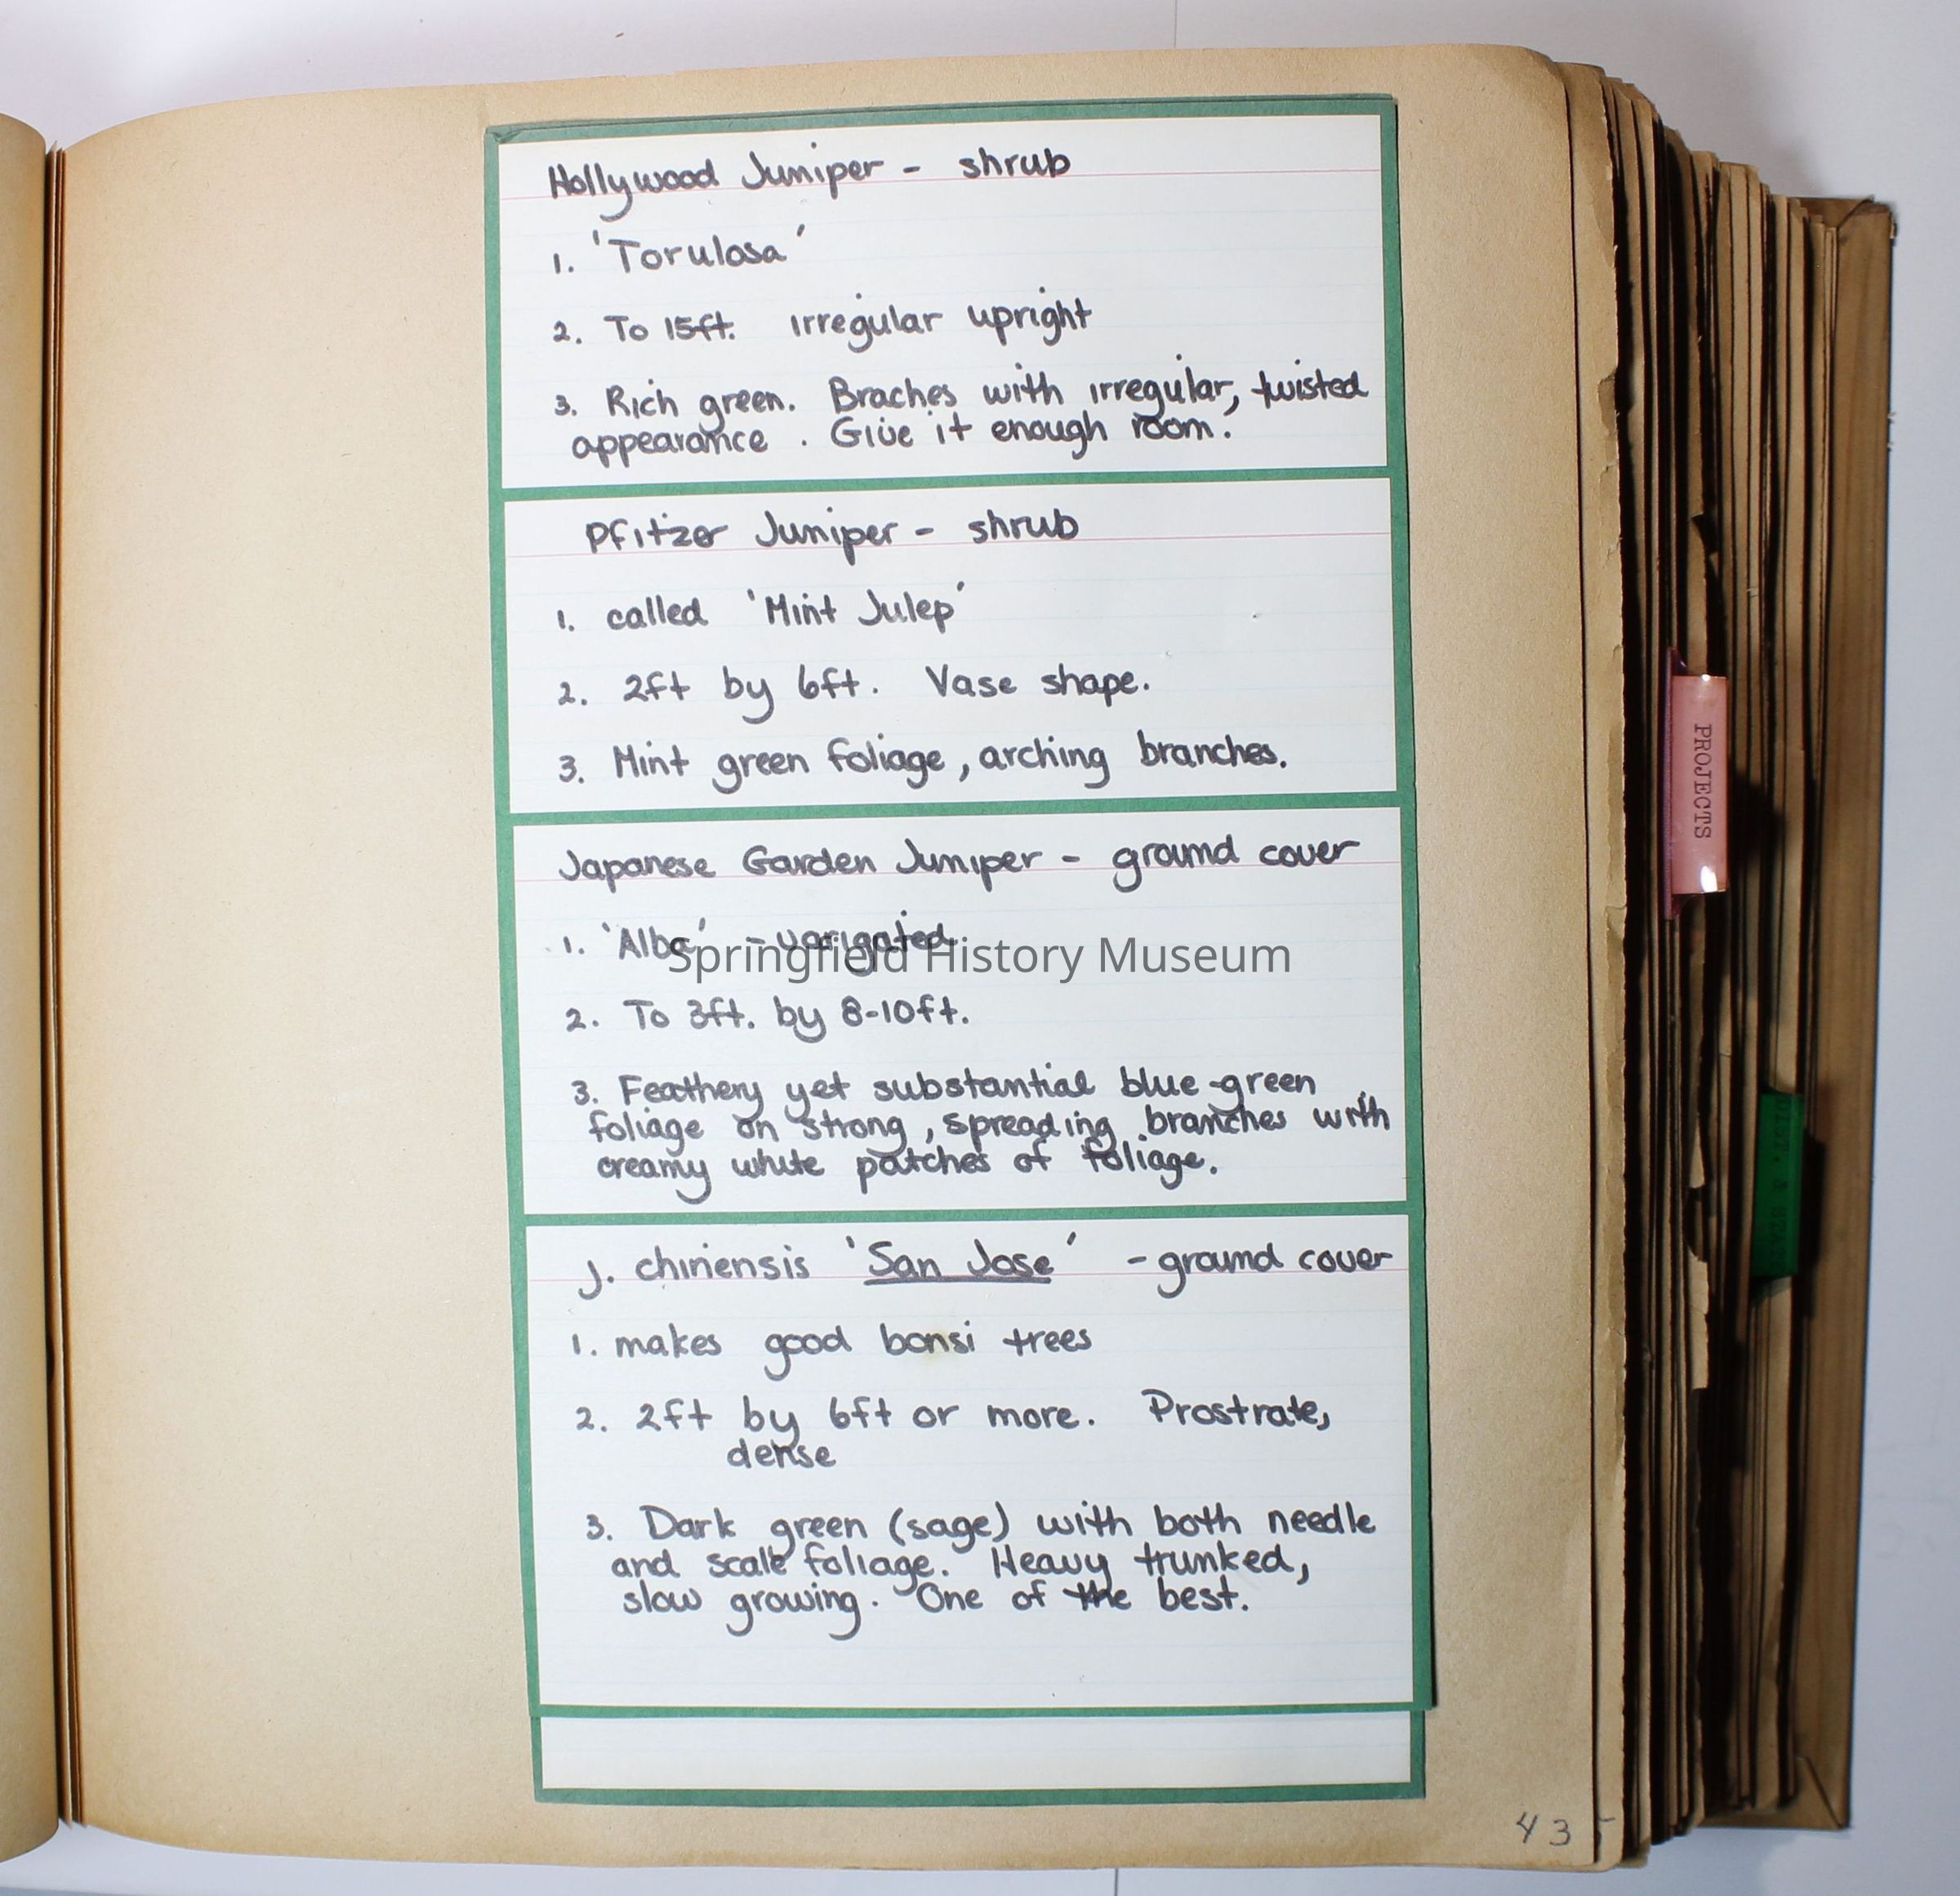 Hollywood Juniper - shrub
1. 'Torulosa'
2. To 15ft. irregular upright
3. Rich green. Braches with irregular, twisted
appearance. Give it enough room.
Pfitzer Juniper - shrub
1. called 'Mint Julep'
2. 2ft by 6ft. Vase shape.
3. Mint green foliage, arching branches.
Japanese Garden Juniper - ground cover
1. 'Alba' - varigated
Springfield History Museum
2. To 3ft. by 8-10ft.
3. Feathery yet substantial blue-green
foliage on strong, spreading branches with
creamy white patches of foliage.
J. chinensis 'San Jose' - ground cover
1. makes good bonsi trees
2. 2ft by 6ft or more. Prostrate,
dense
3. Dark green (sage) with both needle
and scale foliage. Heavy trunked,
slow growing. One of the best.
PROJECTS